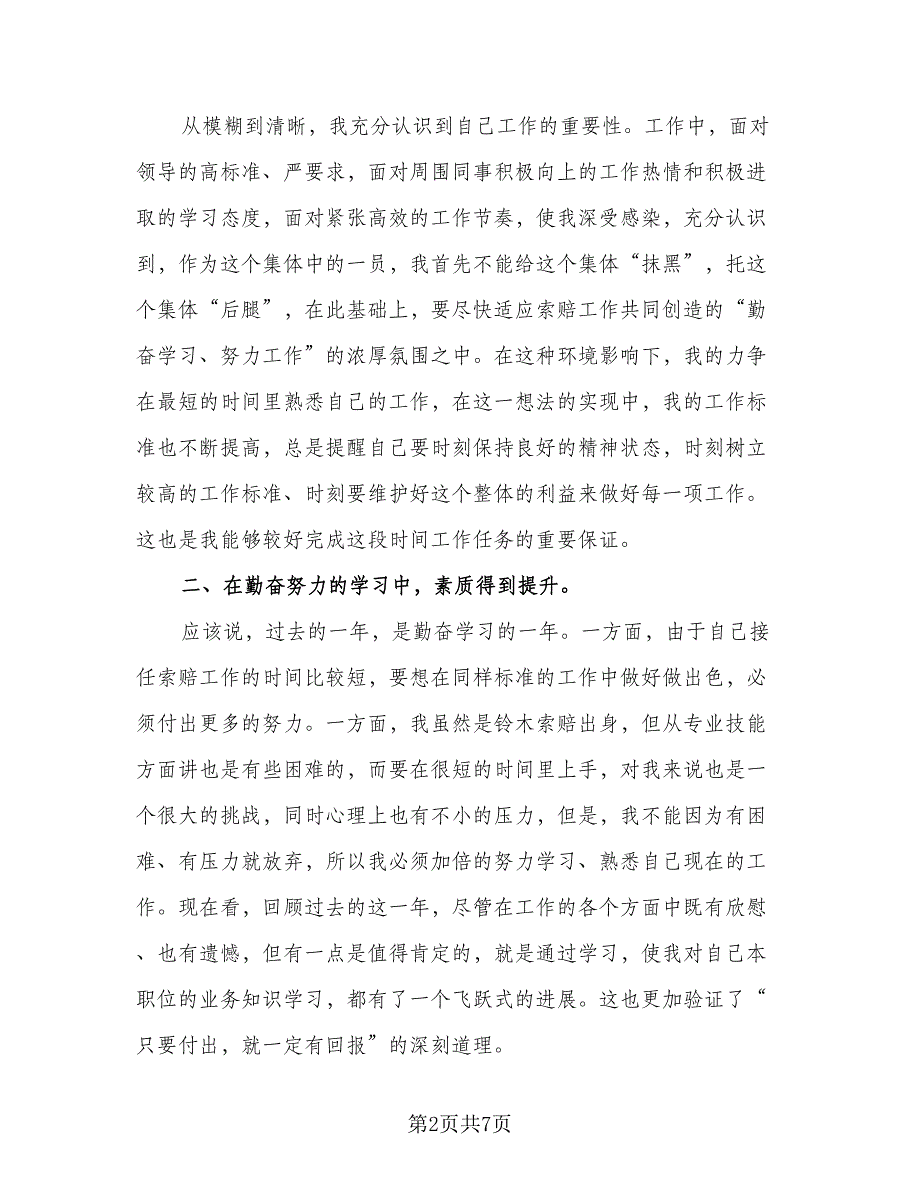 从模糊到清晰，我充分认识到自己工作的重要性。工作中，面对
领导的高标准、严要求，面对周围同事积极向上的工作热情和积极进
取的学习态度，面对紧张高效的工作节奏，使我深受感染，充分认识
到，作为这个集体中的一员，我首先不能给这个集体“抹黑”，托这
个集体“后腿”，在此基础上，要尽快适应索赔工作共同创造的“勤
奋学习、努力工作”的浓厚氛围之中。在这种环境影响下，我的力争
在最短的时间里熟悉自己的工作，在这一想法的实现中，我的工作标
准也不断提高，总是提醒自己要时刻保持良好的精神状态，时刻树立
较高的工作标准、时刻要维护好这个整体的利益来做好每一项工作。
这也是我能够较好完成这段时间工作任务的重要保证。
二、在勤奋努力的学习中，素质得到提升。
应该说，过去的一年，是勤奋学习的一年。一方面，由于自己接
任索赔工作的时间比较短，要想在同样标准的工作中做好做出色，必
须付出更多的努力。一方面，我虽然是铃木索赔出身，但从专业技能
方面讲也是有些困难的，而要在很短的时间里上手，对我来说也是一
个很大的挑战，同时心理上也有不小的压力，但是，我不能因为有困
难、有压力就放弃，所以我必须加倍的努力学习、熟悉自己现在的工
作。现在看，回顾过去的这一年，尽管在工作的各个方面中既有欣慰
、也有遗憾，但有一点是值得肯定的，就是通过学习，使我对自己本
职位的业务知识学习，都有了一个飞跃式的进展。这也更加验证了“
只要付出，就一定有回报”的深刻道理。
第2页共7页